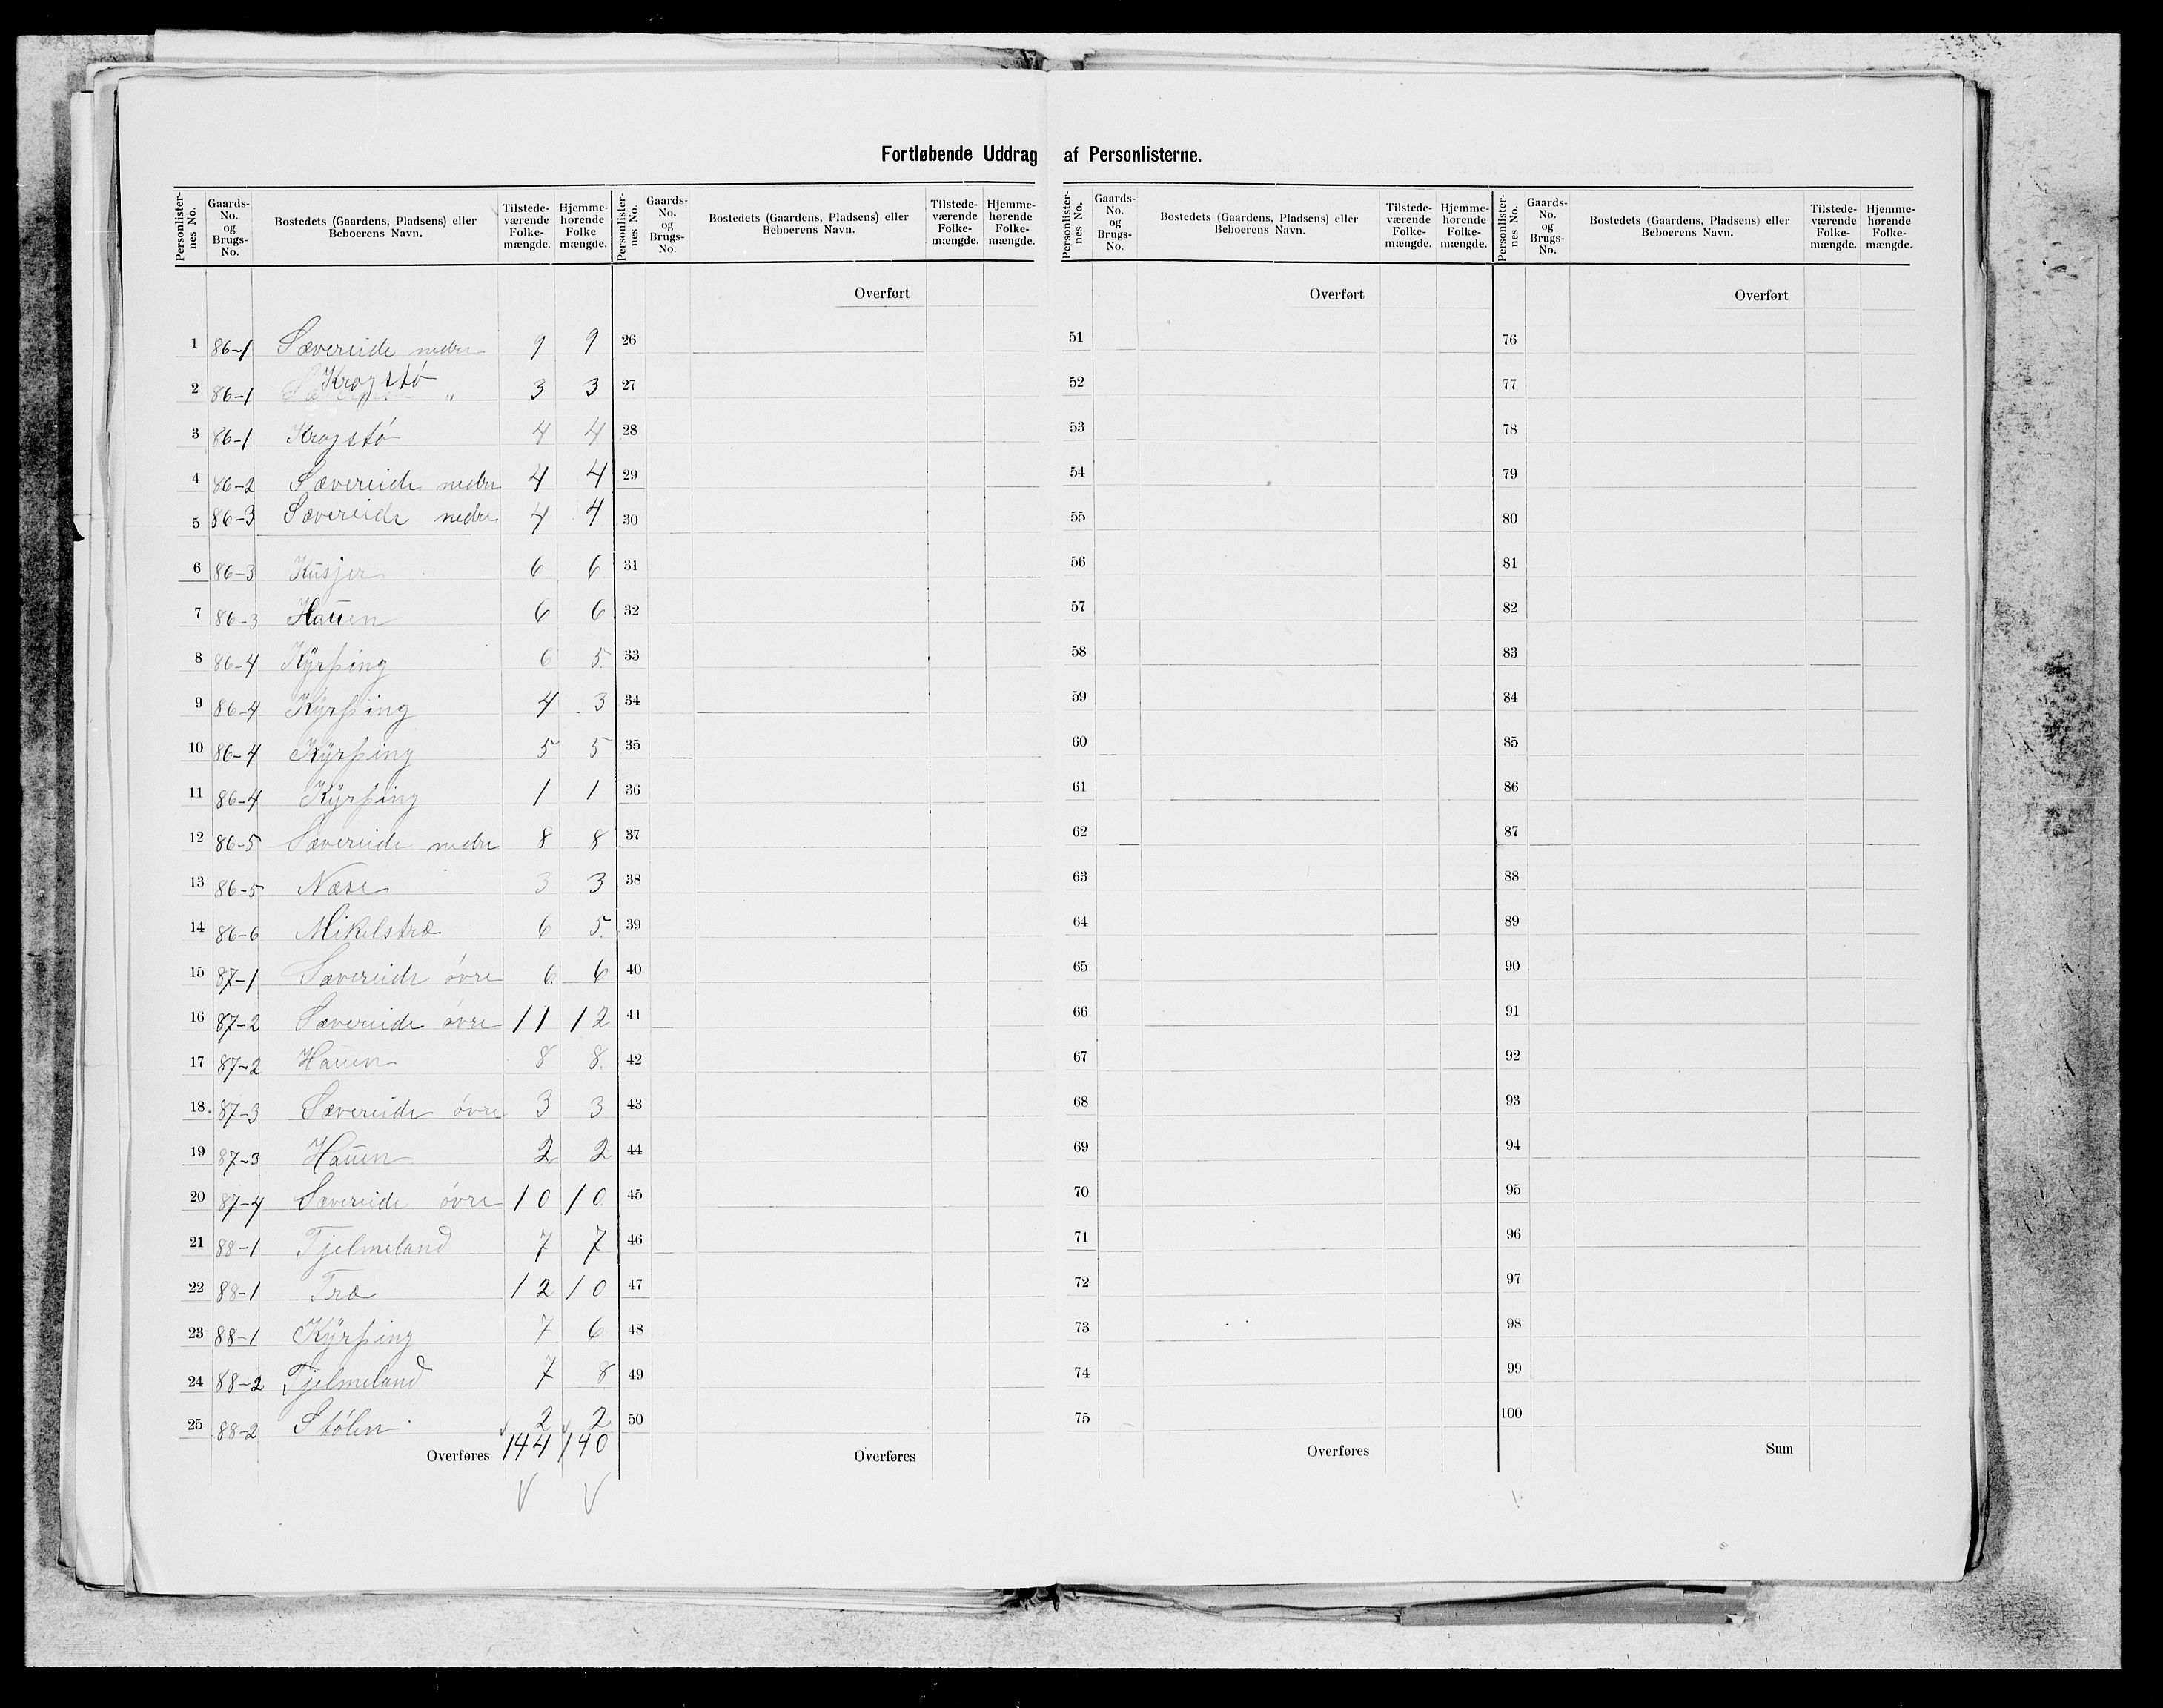 Fortløbende Uddrag af Personlisterne.
Personlister-nes No. Gaards-No. og Brugs-No. Bostedets (Gaardens, Pladsens) eller Beboerens Navn. Tilstede-værende Folke-mængde. Hjemme-hørende Folke mængde.
Personlister-nes No. Gaards-No. og Brugs-No. Bostedets (Gaardens, Pladsens) eller Beboerens Navn. Tilstede-værende Folke-mængde. Hjemme-hørende Folke-mængde.
Personlister-nes No. Gaards-No. og Brugs-No. Bostedets (Gaardens, Pladsens) eller Beboerens Navn. Tilstede-værende Folke-mængde. Hjemme-hørende Folke-mængde.
Personlister-nes No. Gaards-No. og Brugs-No. Bostedets (Gaardens, Pladsens) eller Beboerens Navn. Tilstede-værende Folke-mængde. Hjemme-hørende Folke-mængde.
Overført Overført Overført
1 86-1 Sævereide nedre 9 9 26 51 76
2 86-1 Krogstø " 3 3 27 52 77
3 86-1 Krogstø 4 4 28 53 78
4 86-2 Sævereide nedre 4 4 29 54 79
5 86-3 Sævereide nedre 4 4 30 55 80
6 86-3 Kusjer 6 6 31 56 81
7 86-3 Hauen 6 6 32 57 82
8 86-4 Kyrping 6 5 33 58 83
9 86-4 Kyrping 4 3 34 59 84
10 86-4 Kyrping 5 5 35 60 85
11 86-4 Kyrping 1 1 36 61 86
12 86-5 Sævereide nedre 8 8 37 62 87
13 86-5 Næse 3 3 38 63 88
14 86-6 Mikelstræ 6 5 39 64 89
15 87-1 Sævereide øvre 6 6 40 65 90
16 87-2 Sævereide øvre 11 12 41 66 91
17 87-2 Hauen 8 8 42 67 92
18 87-3 Sævereide øvre 3 3 43 68 93
19 87-3 Hauen 2 2 44 69 94
20 87-4 Sævereide øvre 10 10 45 70 95
21 88-1 Tjelmeland 7 7 46 71 96
22 88-1 Træ 12 10 47 72 97
23 88-1 Kyrping 7 6 48 73 98
24 88-2 Tjelmeland 7 8 49 74 99
25 88-2 Stølen 2 2 50 75 100
Overføres 144 140 Overføres Overføres Sum